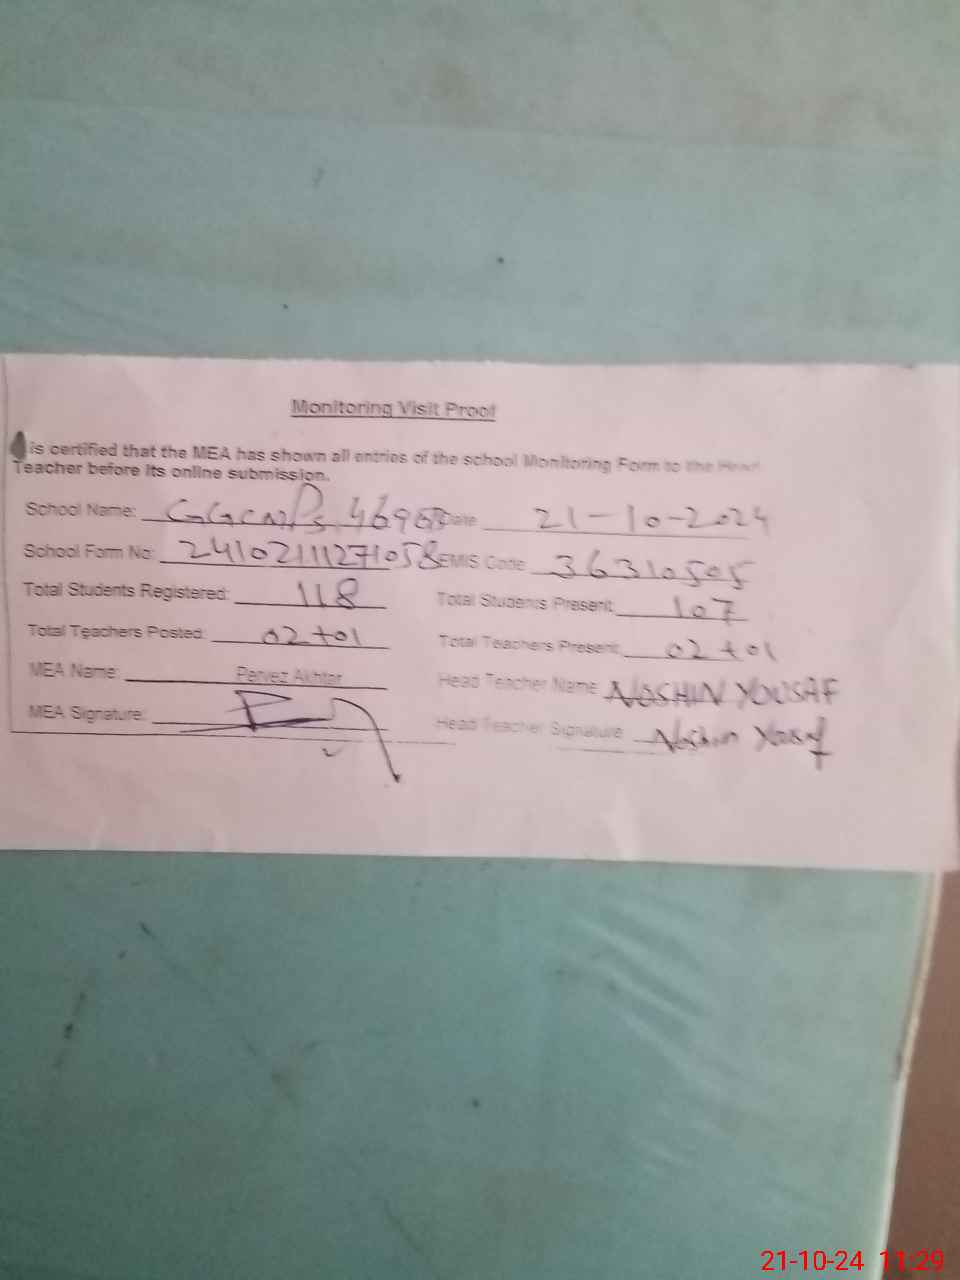 Monitoring Visit Proof
is certified that the MEA has shown all entries of the school Monitoring Form to the Head
Teacher before its online submission.
School Name: GGCMPS, 469 Date 21-10-2024
School Form No: 241021112271058 EMIS Code 36310505
Total Students Registered: 118 Total Students Present: 107
Total Teachers Posted: 02+01 Total Teachers Present: 02+01
MEA Name: Pervez Akhtar Head Teacher Name NOSHIN YOUSAF
MEA Signature: Head Teacher Signature Noshin Yousaf
21-10-24 11:29